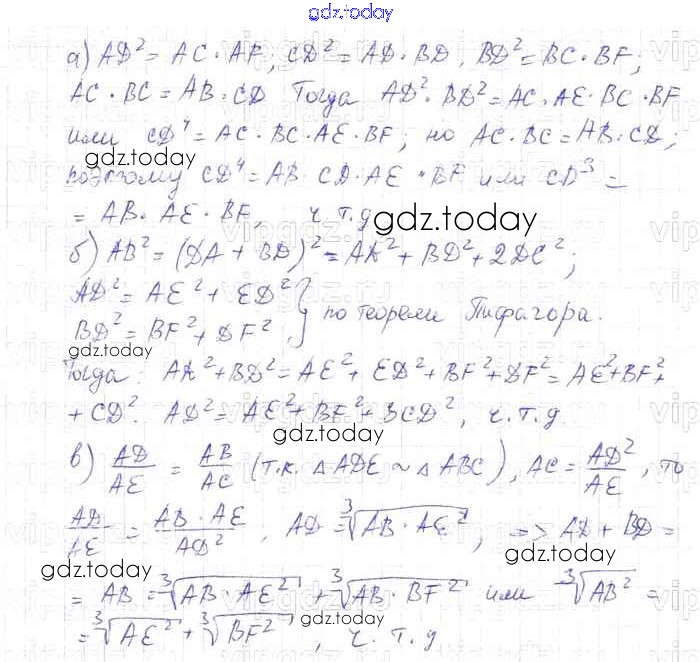 gdz.today
а) AD² = AC · AF, CD² = AD · BD, BD² = BC · BF;
AC · BC = AB · CD Тогда AD² · BD² = AC · AE · BC · BF
или CD⁴ = AC · BC · AE · BF; но AC · BC = AB · CD,
gdz.today
поэтому CD⁴ = AB · CD · AE · BF или CD³ =
= AB · AE · BF, ч.т.д
gdz.today
б) AB² = (DA + BD)² = AK² + BD² + 2DC²;
AD² = AE² + ED²
BD² = BF² + DF², } по теореме Пифагора.
gdz.today
Тогда: AK² + BD² = AE² + ED² + BF² + DF² = AE² + BF² +
+ CD². AD² = AE² + BF² + 3CD², ч.т.д.
gdz.today
в) AD/AE = AB/AC (т.к. △ADE ~ △ABC), AC = AD²/AE, то
AD/AE = AB · AE/AD², AD = ∛AB · AE², => AD + BD =
gdz.today
gdz.today
= AB = ∛AB · AE² + ∛AB · BF² или ∛AB² =
= ∛AE² + ∛BF², ч.т.д